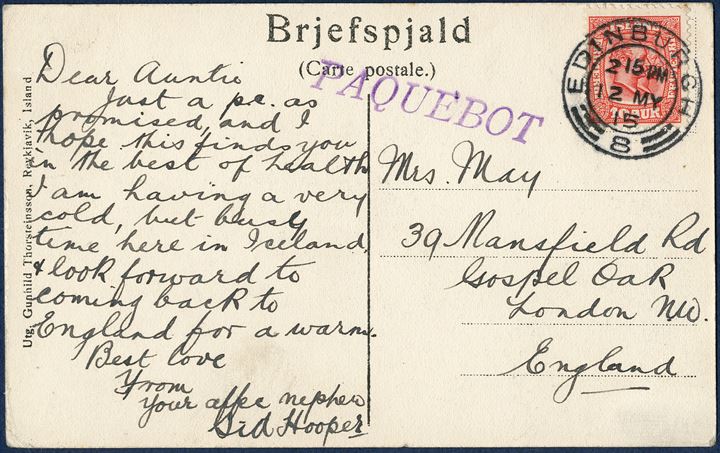 Brjefspjald
(Carte postale.)
PAQUEBOT
EDINBURGH
2 15 PM
12 MY
15
8
10 AUR
Utg. Gunhild Thorsteinsson, Reykjavik, Island
Dear Auntie
Just a p.c. as
promised, and I
hope this finds you
in the best of health
I am having a very
cold, but busy
time here in Iceland,
& look forward to
coming back to
England for a warm.
Best love
From
Your affec nephew
Sid Hooper
Mrs. May
39 Mansfield Rd
Gospel Oak
London NW.
England